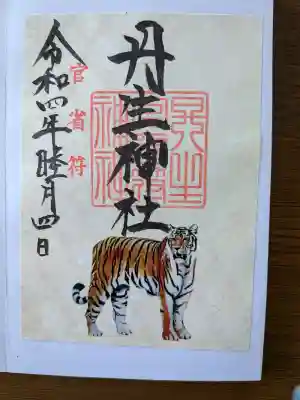 丹生神社
官省符
令和四年睦月四日